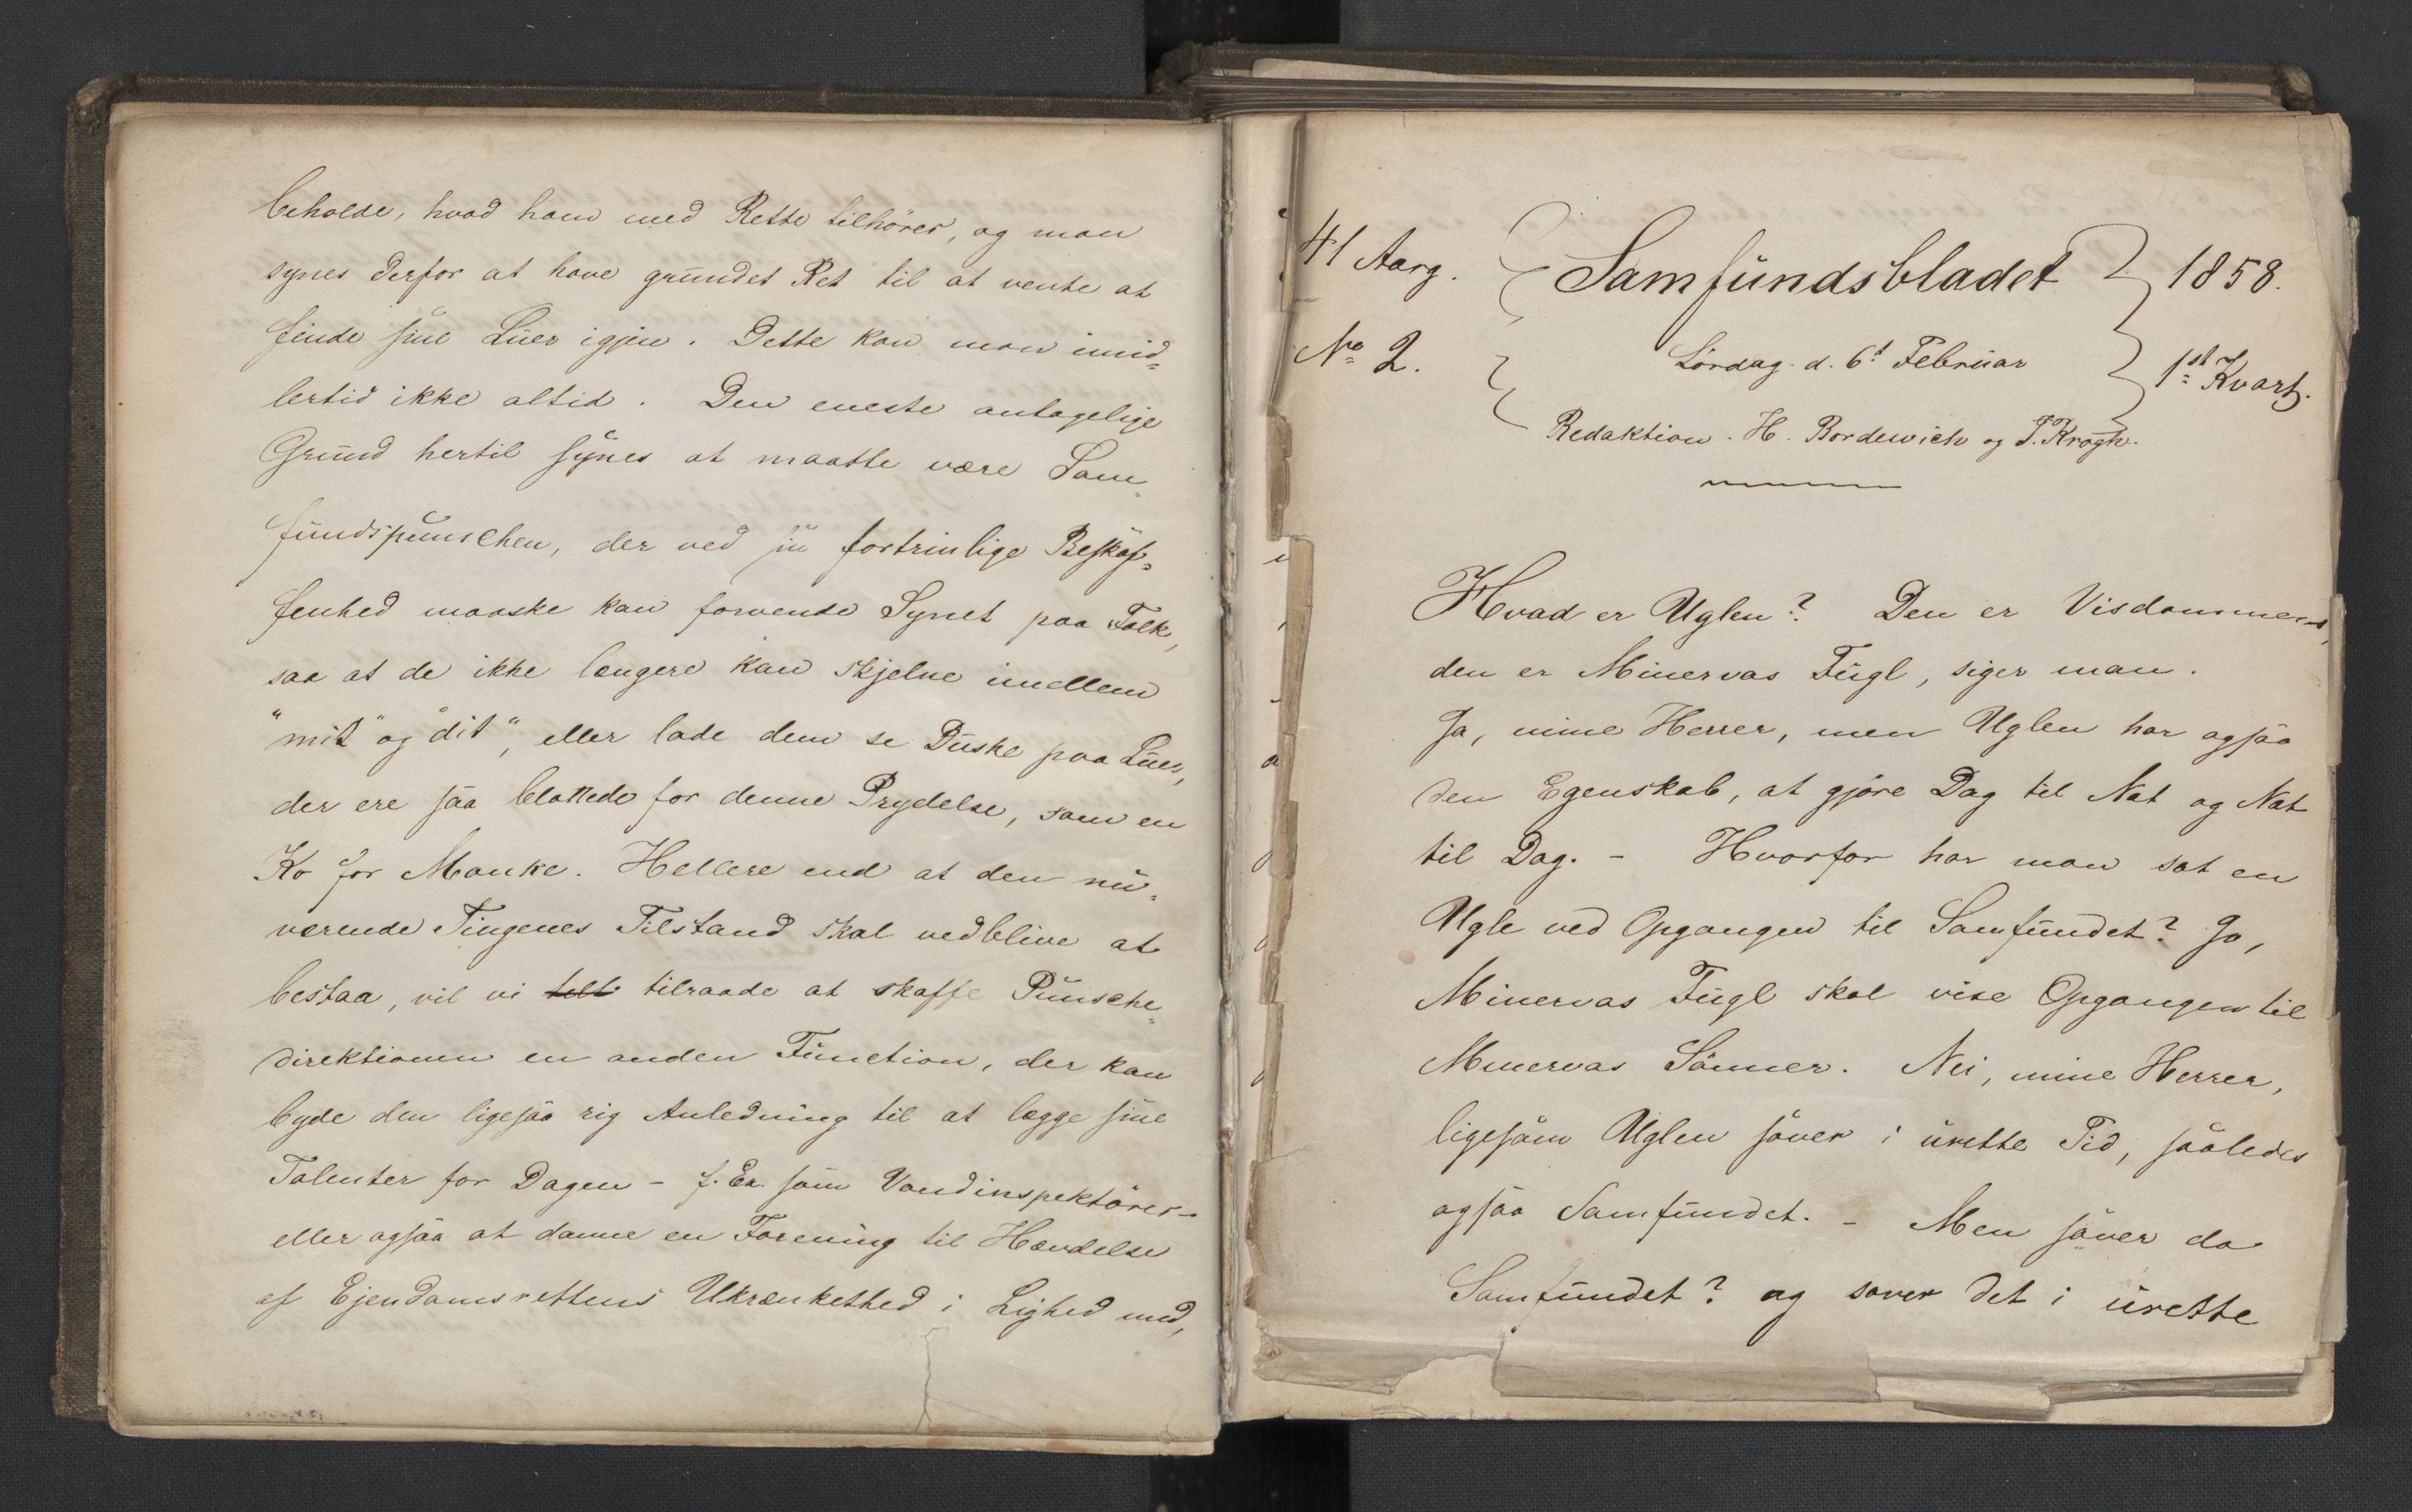 beholde, hvad ham med Rette tilhörer, og man
synes derfor at have grundet Ret til at vente at
finde sine Luer igjen. Dette kan man imid=
lertid ikke altid. Den eneste antagelige
Grund hertil synes at maatte være Sam=
fundspunschen, der ved sin fortrinlige Beskaf=
fenhed maaske kan forvende Synet paa Folk,
saa at de ikke længere kan skjelne imellem
"mit" og "dit", eller lade dem se Duske paa Luer,
der ere saa blottede for denne Prydelse, som en
Ko for Manke. Hellere end at den nu=
værende Tingenes Tilstand skal vedblive at
bestaa, vil vi tilraade at skaffe Punsche=
direktionen en anden Function, der kan
byde den ligesaa rig Anledning til at lægge sine
Talenter for Dagen - f. Ex. som Vandinspektörer -
eller ogsaa at danne en Forening til Hævdelse
af Ejendomsrettens Ukrænkethed i Lighed med,
41 Aarg. Samfundsbladet 1858.
No 2. Lördag d. 6t Februar 1st Kvart.
Redaktion. H. Bordewich og T. Krogh.
Hvad er Uglen? Den er Visdommens,
den er Minervas Fugl, siger man.
Ja, mine Herrer, men Uglen har ogsaa
den Egenskab, at gjöre Dag til Nat og Nat
til Dag. - Hvorfor har man sat en
Ugle ved Opgangen til Samfundet? Jo,
Minervas Fugl skal vise Opgangen til
Minervas Sönner. Nei, mine Herrer,
ligesom Uglen sover i urette Tid, saaledes
ogsaa Samfundet. - Men sover da
Samfundet? og sover det i urette